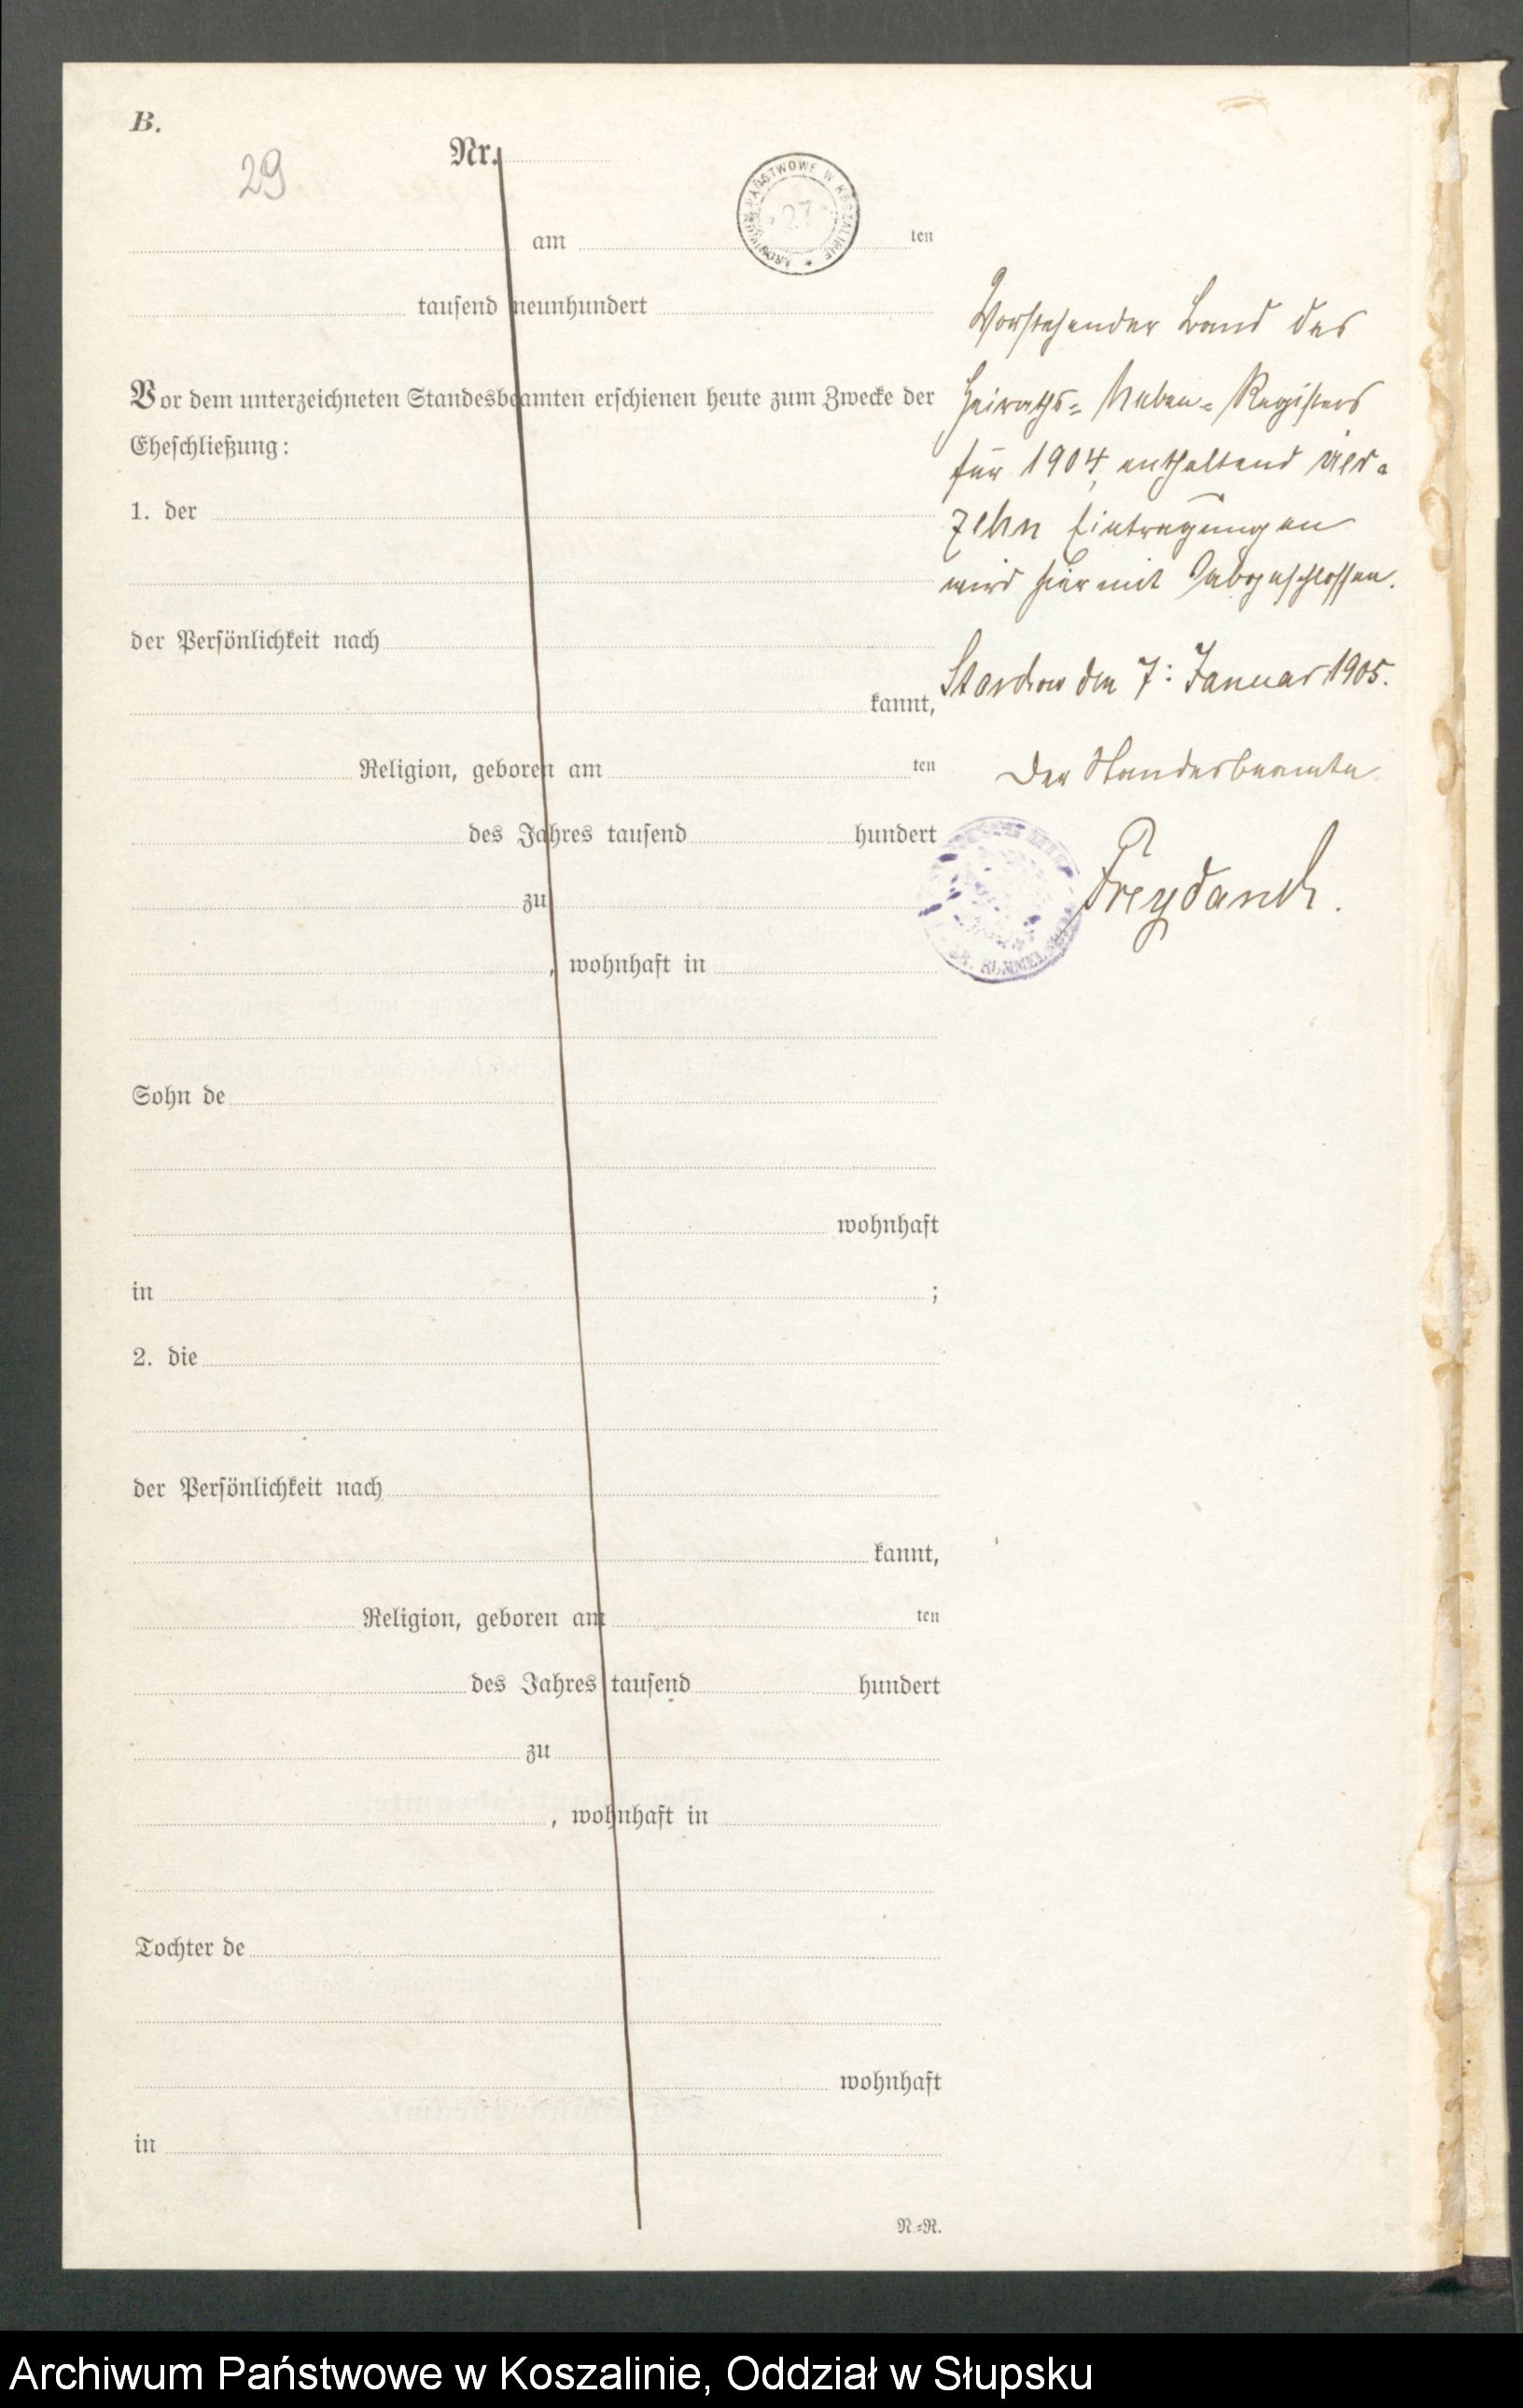 B.
29
Nr.
ARCHIWUM PAŃSTWOWE W KOSZALINIE * 27
am ten
tausend neunhundert
Vor dem unterzeichneten Standesbeamten erschienen heute zum Zwecke der
Eheschließung:
1. der
der Persönlichkeit nach
kannt,
Religion, geboren am ten
des Jahres tausend hundert
zu
, wohnhaft in
Sohn de
wohnhaft
in ;
2. die
der Persönlichkeit nach
kannt,
Religion, geboren am ten
des Jahres tausend hundert
zu
, wohnhaft in
Tochter de
wohnhaft
in
N.=R.
Vorstehender Band des
Heiraths= Neben= Registers
für 1904, enthaltend vier=
zehn Eintragungen
wird hiermit abgeschlossen.
den 7: Januar 1905.
Der Standesbeamte
Freydanck.
Archiwum Państwowe w Koszalinie, Oddział w Słupsku